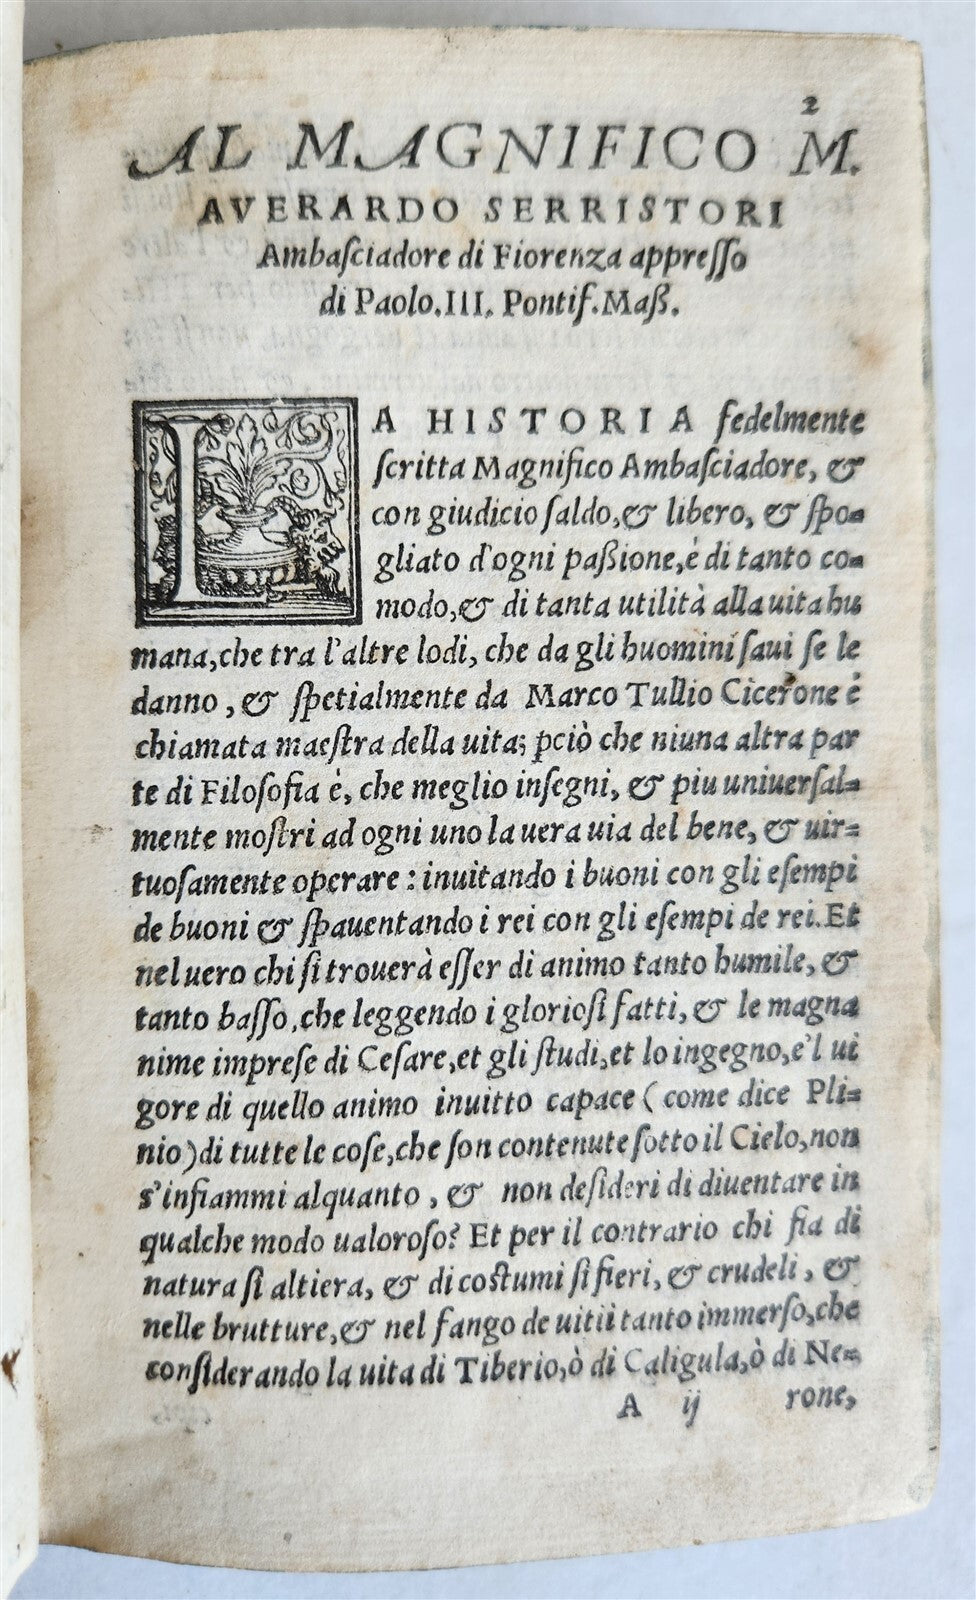 2
AL MAGNIFICO M.
AVERARDO SERRISTORI
Ambaſciadore di Fiorenza appreſſo
di Paolo.III. Pontif.Maß.
LA HISTORIA fedelmente
ſcritta Magnifico Ambaſciadore, &
con giudicio ſaldo,& libero, & ſpo=
gliato d'ogni paßione,è di tanto co=
modo,& di tanta utilità alla uita hu
mana,che tra l'altre lodi, che da gli huomini ſaui ſe le
danno , & ſpetialmente da Marco Tullio Cicerone è
chiamata maeſtra della uita; pciò che niuna altra par
te di Filoſofia è, che meglio inſegni, & piu uniuerſal=
mente moſtri ad ogni uno la uera uia del bene, & uir=
tuoſamente operare : inuitando i buoni con gli eſempi
de buoni & ſpauentando i rei con gli eſempi de rei.Et
nel uero chi ſi trouerà eſſer di animo tanto humile, &
tanto baſſo,che leggendo i glorioſi fatti, & le magna
nime impreſe di Ceſare,et gli ſtudi,et lo ingegno,e'l ui
gore di quello animo inuitto capace ( come dice Pli=
nio) di tutte le coſe,che ſon contenute ſotto il Cielo,non
s'infiammi alquanto , & non deſideri di diuentare in
qualche modo ualoroſo? Et per il contrario chi fia di
natura ſi altiera, & di coſtumi ſi fieri, & crudeli , &
nelle brutture,& nel fango de uitii tanto immerſo,che
conſiderando la uita di Tiberio,ò di Caligula,ò di Ne=
A ij rone,